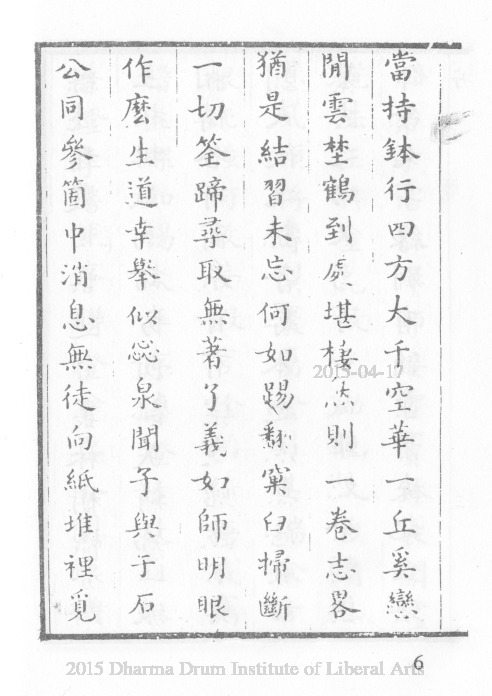 當持鉢行四方大千空華一丘奚戀
閒雲埜鶴到處堪棲然則一卷志畧
猶是結習未忘何如踢翻窠臼掃斷
一切筌蹄尋取無著了義如師明眼
作麼生道幸舉似忩泉聞子與于石
公同參箇中消息無徒向紙堆裡覓
2015-04-17
6
2015 Dharma Drum Institute of Liberal Arts